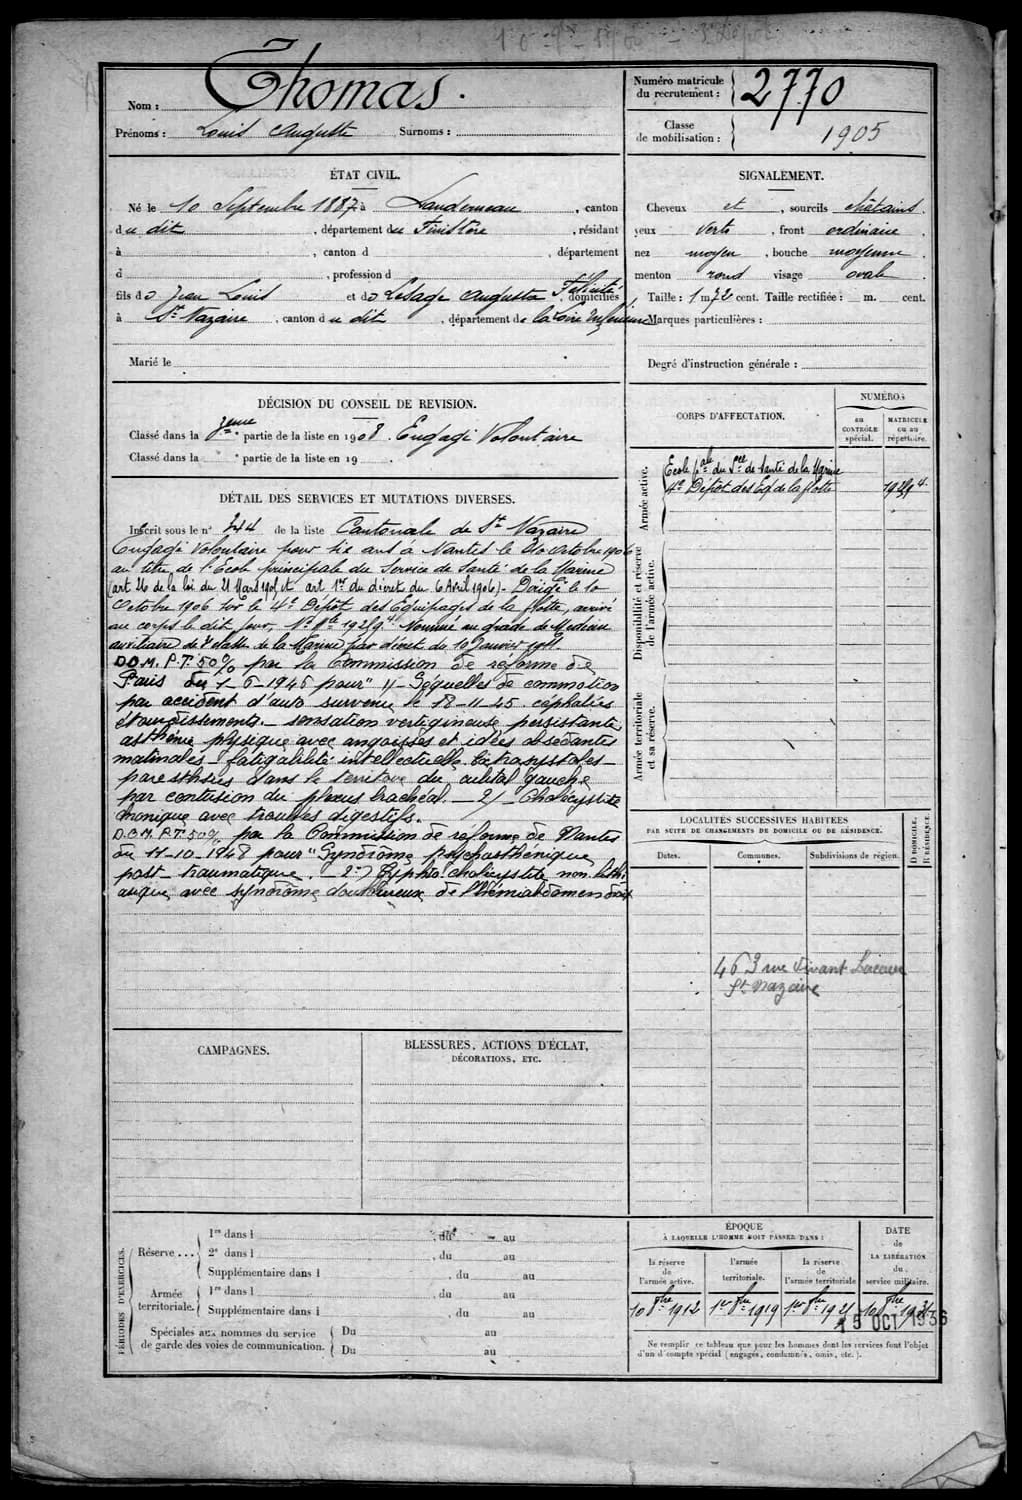 Nom : Thomas.
Prénoms : Louis Auguste Surnoms :
Numéro matricule du recrutement : 2770
Classe de mobilisation : 1905
ÉTAT CIVIL.
Né le 10 Septembre 1887 à Landerneau, canton
du dit, département du Finistère, résidant
à , canton d , département
d , profession d
fils de Jean Louis et de Lesage Augusta Félicité, domiciliés
à St Nazaire, canton du dit, département de la Loire Inférieure
Marié le
SIGNALEMENT.
Cheveux et, sourcils châtains.
yeux verts, front ordinaire
nez moyen, bouche moyenne
menton rond visage ovale
Taille : 1 m 72 cent. Taille rectifiée : m. cent.
Marques particulières :
Degré d'instruction générale :
DÉCISION DU CONSEIL DE REVISION.
Classé dans la partie de la liste en 1908. Engagé Volontaire
Classé dans la partie de la liste en 19 .
CORPS D'AFFECTATION.
NUMÉROS
au CONTRÔLE spécial.
MATRICULE ou au répertoire.
Armée active.
Ecole pale du Sce de Santé de la Marine
4e Dépôt des Eq. de la flotte
Disponibilité et réserve de l'armée active.
Armée territoriale et sa réserve.
DÉTAIL DES SERVICES ET MUTATIONS DIVERSES.
Inscrit sous le n° 244 de la liste Cantonale de St Nazaire
Engagé Volontaire pour six ans à Nantes le 10 octobre 1906
au titre de l'Ecole principale du Service de Santé de la Marine
(art 26 de la loi du 21 Mars 1905 et art 1er du décret du 6 Avril 1906) - Dirigé le 10
Octobre 1906 sur le 4e Dépôt des Equipages de la flotte, arrivé
au corps le dit jour, Nommé au grade de Médecin
auxiliaire de 2e classe de la Marine par décret du 10 Janvier 1911.
D.O.M. P.T. 50% par la Commission de réforme de
Paris du 1-6-1946 pour "1/- Séquelles de commotion
par accident d'auto survenu le 18-11-45. céphalées
étourdissements - sensation vertigineuse persistante,
asthénie physique avec angoisses et idées obsédantes
matinales - fatigabilité intellectuelle. Extrasystoles -
paresthésies dans le territoire du cubital gauche
par contusion du plexus brachéal. - 2/- Cholécystite
chronique avec troubles digestifs.
D.O.M. P.T. 50% par la Commission de reforme de Nantes
du 11-10-1948 pour "Syndrôme psychasthénique
post traumatique. 2°) cholécystite non lithi-
asique avec syndrôme douloureux de l'hémiabdomen droit
LOCALITÉS SUCCESSIVES HABITÉES
PAR SUITE DE CHANGEMENTS DE DOMICILE OU DE RÉSIDENCE.
Dates.
Communes.
Subdivisions de région.
D DOMICILE.
R RÉSIDENCE.
rue Vivant Lacour
St Nazaire
CAMPAGNES.
BLESSURES, ACTIONS D'ÉCLAT,
DÉCORATIONS, ETC.
PÉRIODES D'EXERCICES.
Réserve ...
1re dans l , du au
2e dans l , du au
Supplémentaire dans l , du au
Armée territoriale.
1re dans l , du au
Supplémentaire dans l , du au
Spéciales aux hommes du service de garde des voies de communication.
Du au
Du au
ÉPOQUE
À LAQUELLE L'HOMME DOIT PASSER DANS :
la réserve de l'armée active.
l'armée territoriale.
la réserve de l'armée territoriale
DATE de LA LIBÉRATION du service militaire.
10 8bre 1912
15 OCT. 1936
Ne remplir ce tableau que pour les hommes dont les services font l'objet
d'un décompte spécial (engagés, condamnés, omis, etc.).